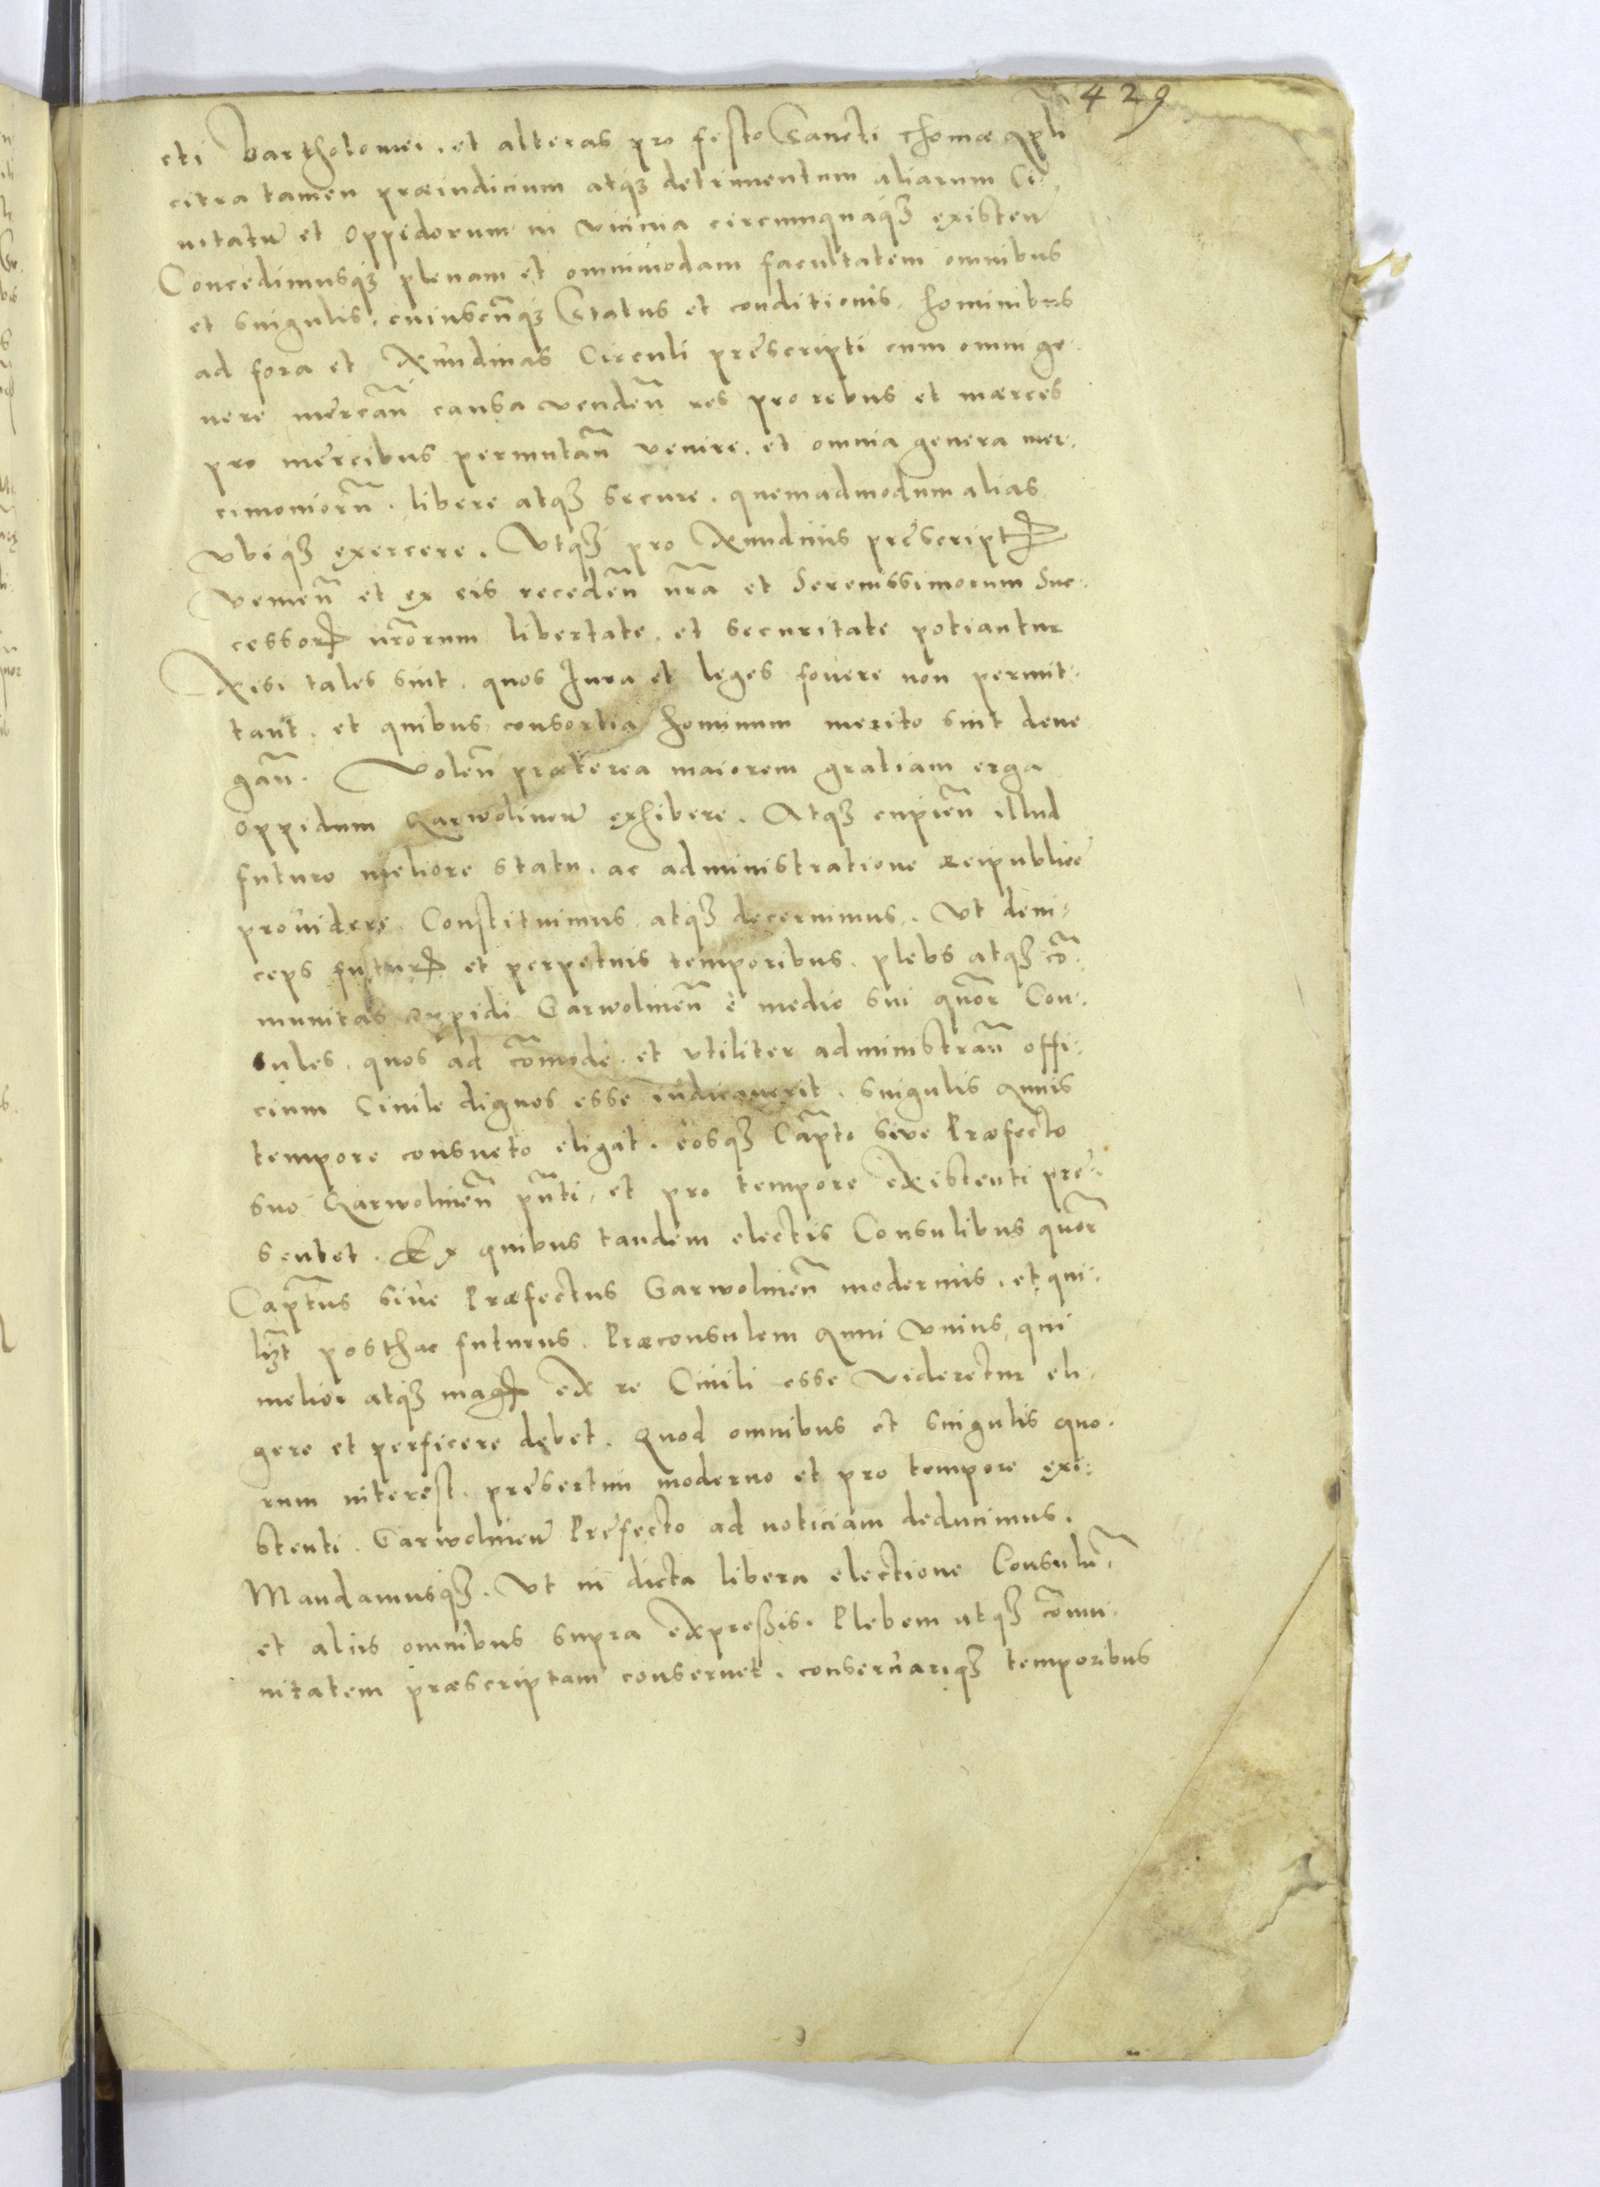 429
cti Bartholomei. et alteras pro festo Sancti Thomæ Apli
citra tamen præiudicium atq3 detrimentum aliarum Ci-
uitatu͂ et Oppidorum in vicinia circumquaq3 existen͂
Concedimusq3 plenam et omnimodam facultatem omnibus
et singulis. cuiuscu͂q3 Status et conditionis. hominibus
ad fora et Nundinas Circuli prescripti cum omni ge-
nere mercan͂ causa venden͂ res pro rebus et mærces
pro mercibus permutan͂ venire. et omnia genera mer-
cimonioru͂. libere atq3 secure. quemadmodum alias
vbiq3 exercere. Vtq3 pro Nundinis prescriptꝭ
venien͂ et ex eis receden͂ nr͂a et Serenissimorum Suc-
cessorꝝ nr͂orum libertate. et securitate potiantur
Nisi tales sint. quos Iura et leges fouere non permit-
tant. et quibus consortia hominum merito sint dene
gan͂. Volen͂ præterea maiorem gratiam erga
oppidum Garwolinen͂ exhibere. Atq3 cupien͂ illud
futuro meliore statu. ac administratione reipublice
prouidere. Constituimus atq3 decernimus. Vt dein-
ceps futurꝭ et perpetuis temporibus. plebs atq3 co͂-
munitas oppidi Garwolinen͂ è medio sui quor͂ Con-
sules. quos ad co͂mode. et vtiliter administran͂ offi-
cium Ciuile dignos esse iudicauerit. singulis Annis
tempore consueto eligat. eosq3 Cap͂to siue Præfecto
suo Garwolinen͂ pn͂ti, et pro tempore existenti pre-
sentet. Ex quibus tandem electis Consulibus quor͂
Cap͂tus siue Præfectus Garwolinen͂ modernus. et qui-
lib͂t posthac futurus. Præconsulem Anni vnius, qui
melior atq3 magꝭ ex re Ciuili esse videretur eli-
gere et perficere debet. Quod omnibus et singulis quo-
rum interest. presertim moderno et pro tempore exi-
stenti. Garwolinen͂ Prefecto ad noticiam deducimus.
Mandamusq3. Vt in dicta libera electione Consulu͂
et aliis omnibus supra expressis. Plebem atq3 co͂mu-
nitatem præscriptam conseruet. conseruariq3 temporibus